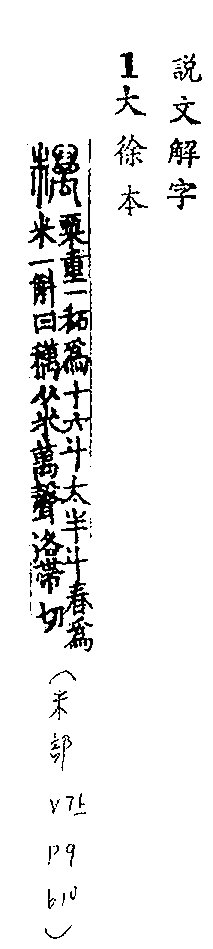 説文解字
1大徐本
粟重一䄷爲十六斗太半斗舂爲
米一斛曰糲从米萬聲洛帶切
(米部 V7上 P9 b10)